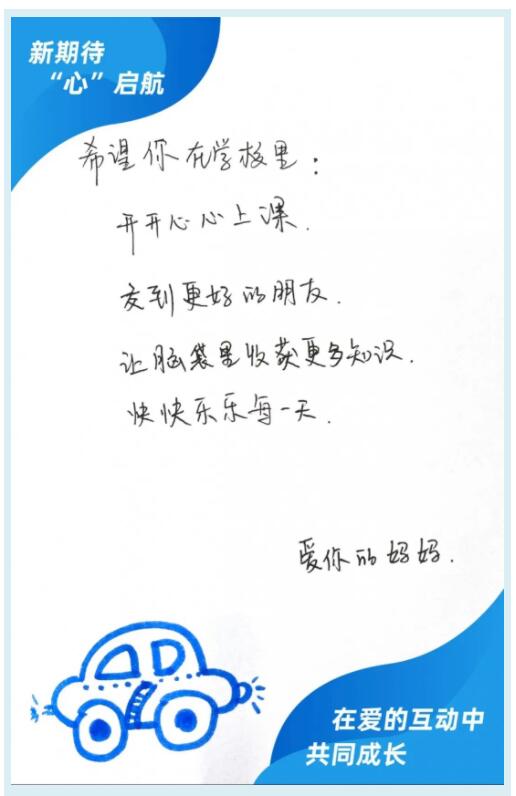 新期待
“心”启航
希望你在学校里：
开开心心上课.
交到更好的朋友.
让脑袋里收获更多知识.
快快乐乐每一天.
爱你的妈妈.
在爱的互动中
共同成长